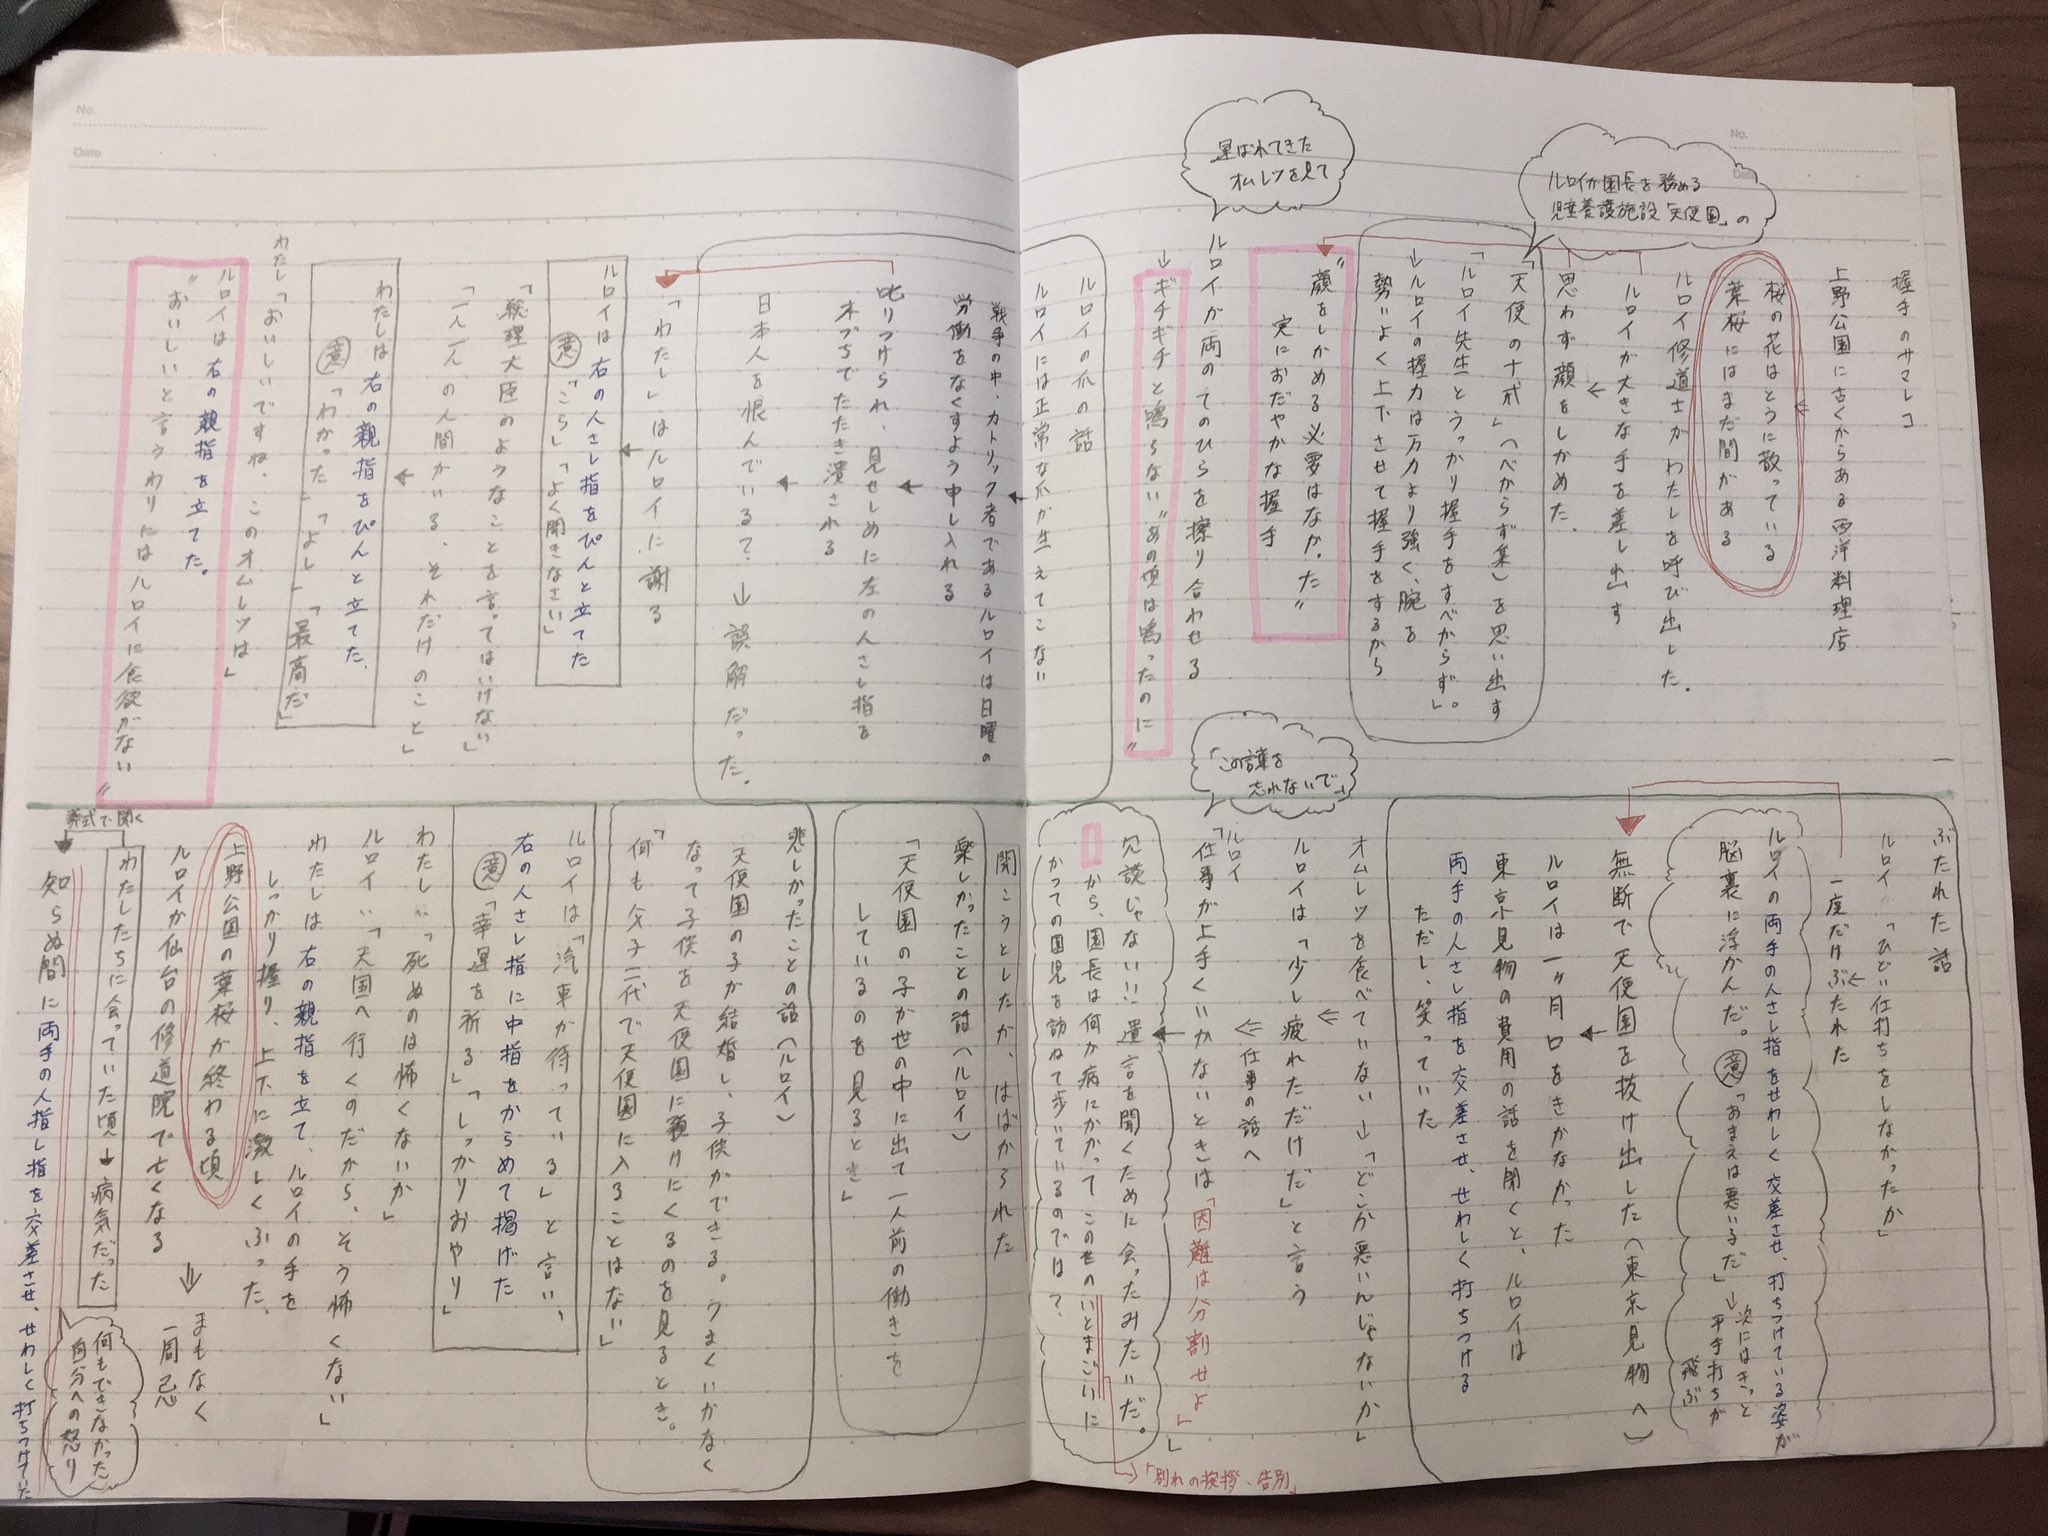 No.
Date
握手のサマレコ
上野公園に古くからある西洋料理店
桜の花はとうに散っている
葉桜にはまだ間がある
ルロイ修道士がわたしを呼び出した。
ルロイが大きな手を差し出す
思わず顔をしかめた。
ルロイが園長を務める
児童養護施設「天使園」の
「天使の十戒」(べからず集)を思い出す
「ルロイ先生とうっかり握手をすべからず」。
→ルロイの握力は万力より強く、腕を
勢いよく上下させて握手をするから
"顔をしかめる必要はなかった"
実におだやかな握手
運ばれてきた
オムレツを見て
ルロイが両のてのひらを擦り合わせる
→ギチギチと鳴らない"あの頃は鳴ったのに"
ルロイの爪の話
ルロイには正常な爪が生えてこない
No.
Date
戦争の中、カトリック者であるルロイは日曜の
労働をなくすよう申し入れる
叱りつけられ、見せしめに左の人さし指を
木づちでたたき潰される
日本人を恨んでいる?→誤解だった。
「わたし」はルロイに謝る
ルロイは右の人さし指をぴんと立てた
意「こら」「よく聞きなさい」
「総理大臣のようなことを言ってはいけない」
「一人一人の人間がいる、それだけのこと」
わたしは右の親指をぴんと立てた、
意「わかった」「よし」「最高だ」
わたし「おいしいですね、このオムレツは」
ルロイは右の親指を立てた。
"おいしいと言うわりにはルロイに食欲がない"
ぶたれた話
ルロイ「ひどい仕打ちをしなかったか」
一度だけぶたれた
ルロイの両手の人さし指をせわしく交差させ、打ちつけている姿が
脳裏に浮かんだ。意「おまえは悪い子だ」→次にはきっと
平手打ちが
飛ぶ
無断で天使園を抜け出した(東京見物へ)
ルロイは一ヶ月口をきかなかった
東京見物の費用の話を聞くと、ルロイは
両手の人さし指を交差させ、せわしく打ちつける
ただし、笑っていた
オムレツを食べていない→「どこか悪いんじゃないか」
ルロイは「少し疲れただけだ」と言う
仕事の話へ
「この言葉を
忘れないで」
ルロイ
「仕事が上手くいかないときは「困難は分割せよ」」
冗談じゃない!遺言を聞くために会ったみたいだ。
から、園長は何か病にかかってこの世のいとまごいに
かつての園児を訪ねて歩いているのでは?
→「別れの挨拶、告別」
聞こうとしたが、はばかられた
楽しかったことの話(ルロイ)
「天使園の子が世の中に出て一人前の働きを
しているのを見るとき」
悲しかったことの話(ルロイ)
天使園の子が結婚し、子供ができる。うまくいかなく
なって子供を天使園に預けにくるのを見るとき。
「何も父子二代で天使園に入ることはない」
ルロイは「汽車が待っている」と言い、
右の人さし指に中指をからめて掲げた
意「幸運を祈る」「しっかりおやり」
わたし「死ぬのは怖くないか」
ルロイ「天国へ行くのだから、そう怖くない」
わたしは右の親指を立て、ルロイの手を
しっかり握り、上下に激しくふった。
上野公園の葉桜が終わる頃
ルロイが仙台の修道院で亡くなる
⇒まもなく
一周忌
わたしたちに会っていた頃→病気だった
葬式で聞く
知らぬ間に両手の人指し指を交差させ、せわしく打ちつけていた
何もできなかった
自分への怒り